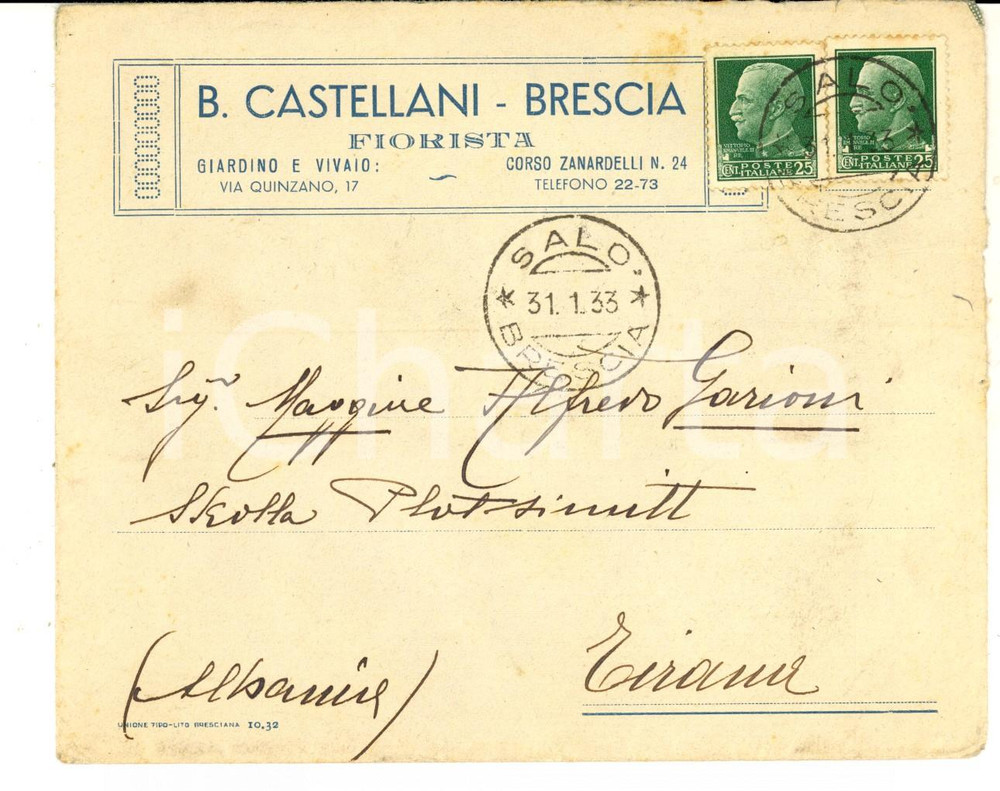 B. CASTELLANI - BRESCIA
FIORISTA
GIARDINO E VIVAIO:
VIA QUINZANO, 17
CORSO ZANARDELLI N. 24
TELEFONO 22-73
VITTORIO EMANUELE III RE
CENT. POSTE ITALIANE 25
VITTORIO EMANUELE III RE
CENT. POSTE ITALIANE 25
SALO'
BRESCIA
SALO'
31.1.33
BRESCIA
iCharta
Sig. Maggiore Alfredo Garioni
Skolla Plotsimitt
Tirana
(Albania)
UNIONE TIPO-LITO BRESCIANA 10.32